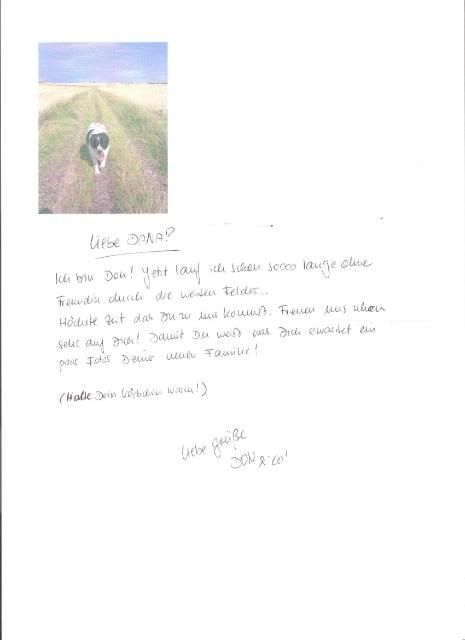 Liebe DANA!
Ich bin Don! Jetzt lauf ich schon soooo lange ohne
Freundin durch die weiten Felder...
Höchste Zeit das Du zu uns kommst. Freuen uns schon
sehr auf Dich! Damit Du weißt was Dich erwartet ein
paar Fotos Deiner neuen Familie!
(Halte Dein Körbchen warm!)
Liebe Grüße
DON & Co!